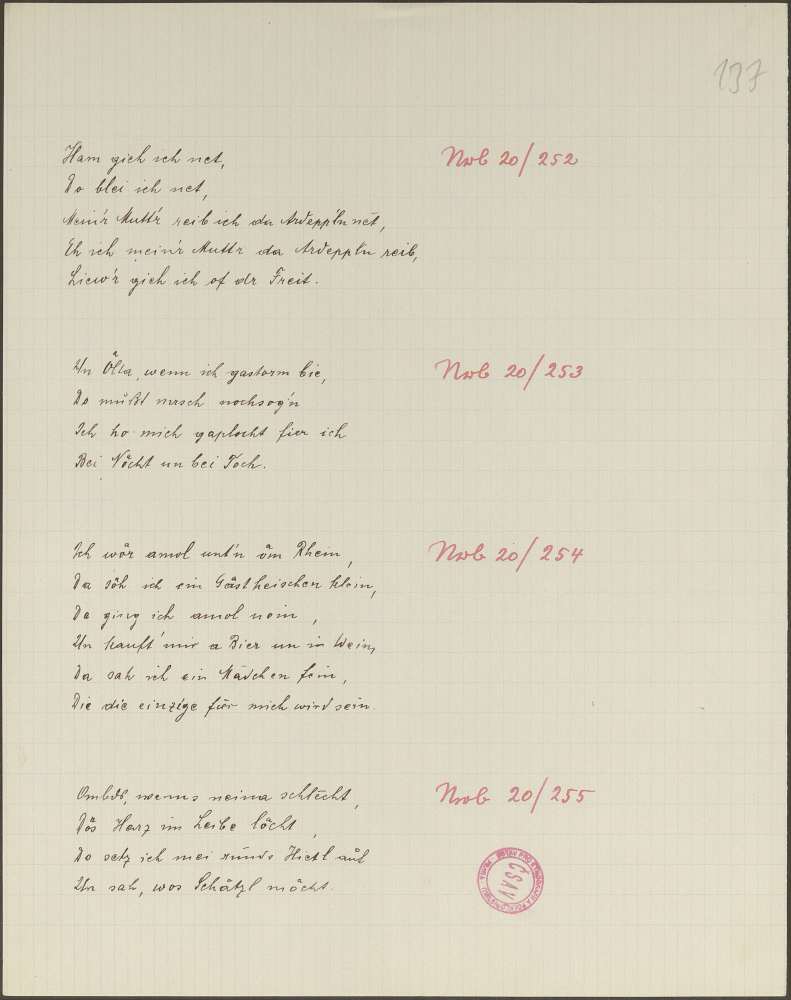 137
Ham gieh ich net, Nrb 20/252
Do blei ich net,
Mein'r Mutt'r reib ich da Ardeppl'n net,
Eh ich mein'r Muttr da Ardeppln reib,
Liew'r gieh ich of dr Freit.
Un Ölla, wenn ich gastorm bie, Nrb 20/253
Do mußt mrsch nochsog'n
Ich ho mich gaplocht fier ich
Bei Nocht un bei Toch.
Ich wår amol unt'n åm Rhein, Nrb 20/254
Da såh ich ein Gåstheischen klein,
Da ging ich amol nein,
Un kauft' mir a Bier un in Wein,
Da sah ich ein Mädchen fein,
Die die einzige für mich wird sein.
wenns neina schlecht, Nrb 20/255
Dås Harz im Leibe låcht,
Do setz ich mei runds Hietl auf
Un sah, wos Schåtzl måcht.
ČSAV